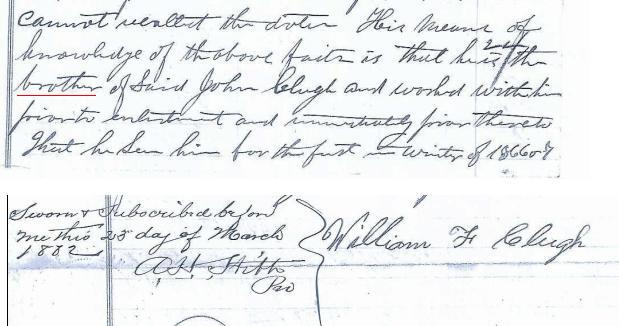 Cannot recollect the dates His means of
knowledge of the above facts is that he is the
brother of Said John Clugh and worked with him
prior to enlistment and immediately prior thereto
That he Seen him for the first in winter of 1866 or 7
Sworn & Subscribed before
me this 28 day of March
1882
A.H. Stitt
William F Clugh